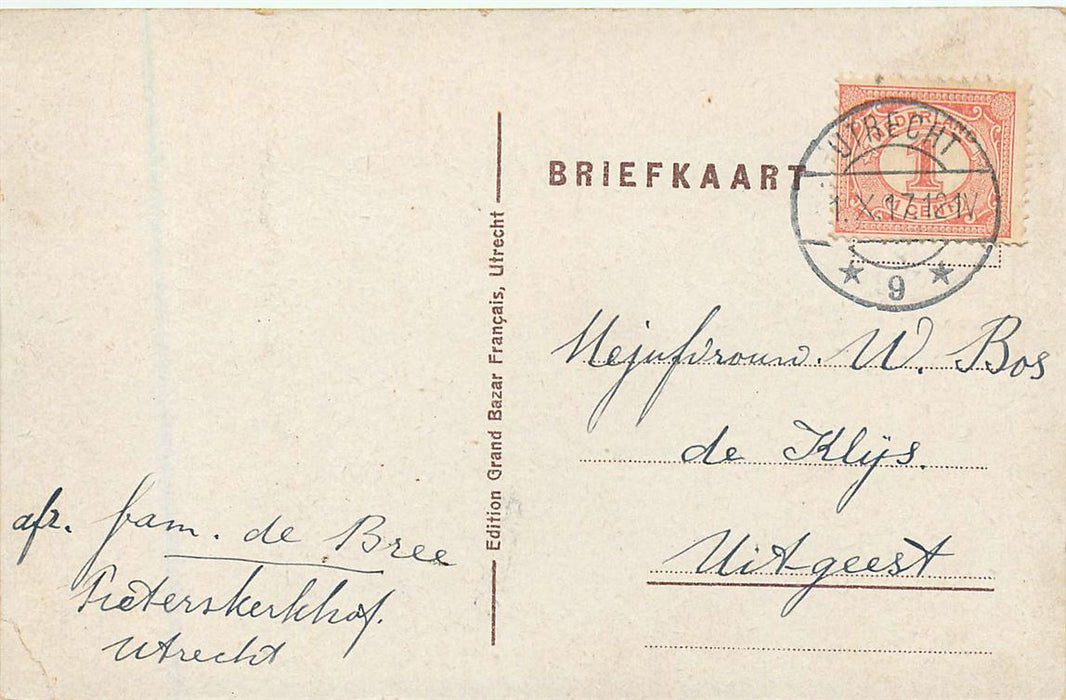 BRIEFKAART
NEDERLAND
1
CENT
UTRECHT
1.X.17.
9
Edition Grand Bazar Français, Utrecht
Mejufvrouw. W. Bos
de Klijs.
Uitgeest
afz. fam. de Bree
Pieterskerkhof.
Utrecht